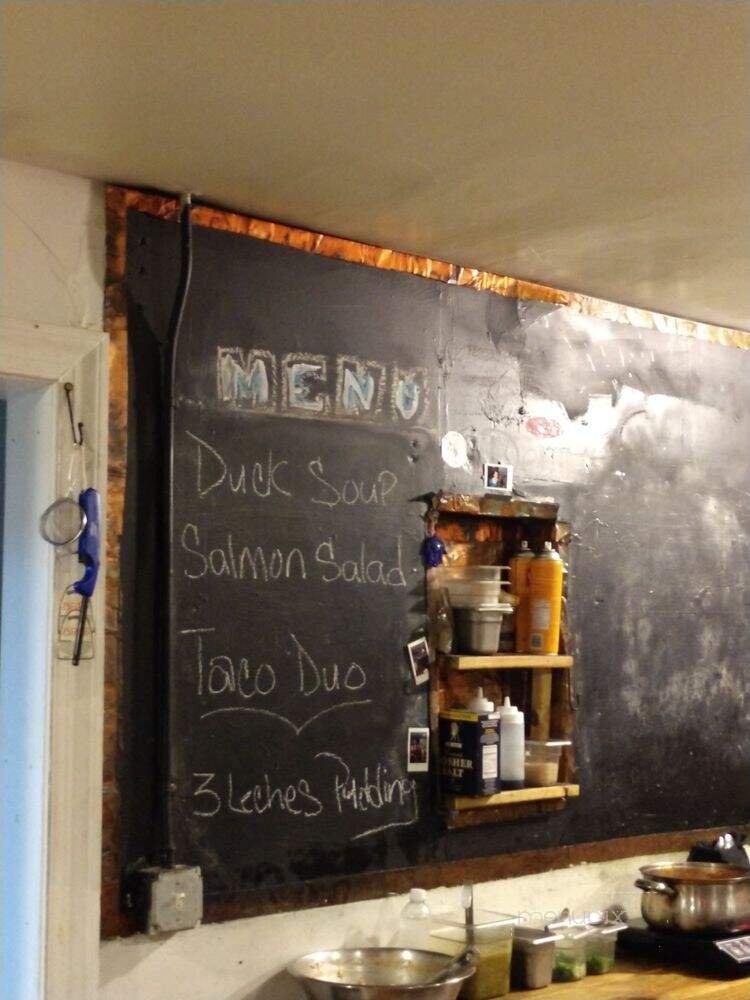 MENU
Duck Soup
Salmon Salad
Taco Duo
3 Leches Pudding
OSHER
ALT
menupix